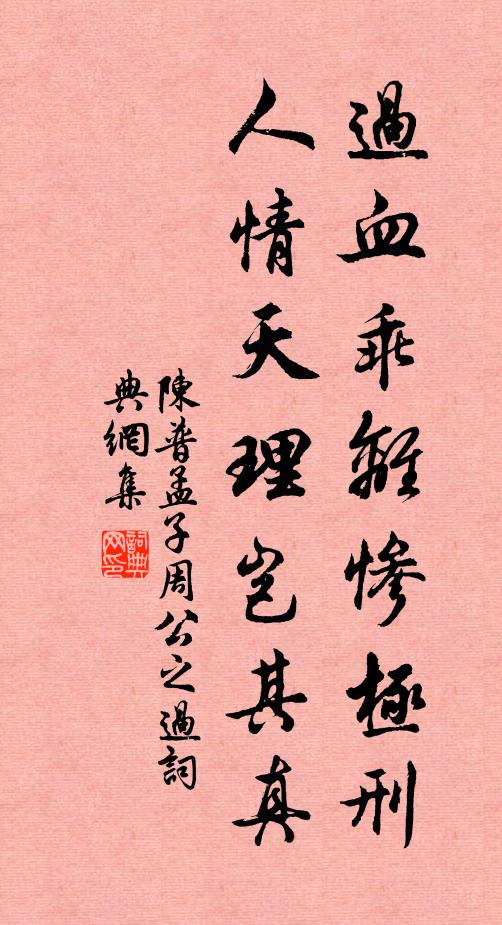 過血乖離慘極刑
人情天理豈其真
陳普孟子周公之過詞
典網集
詞典网印